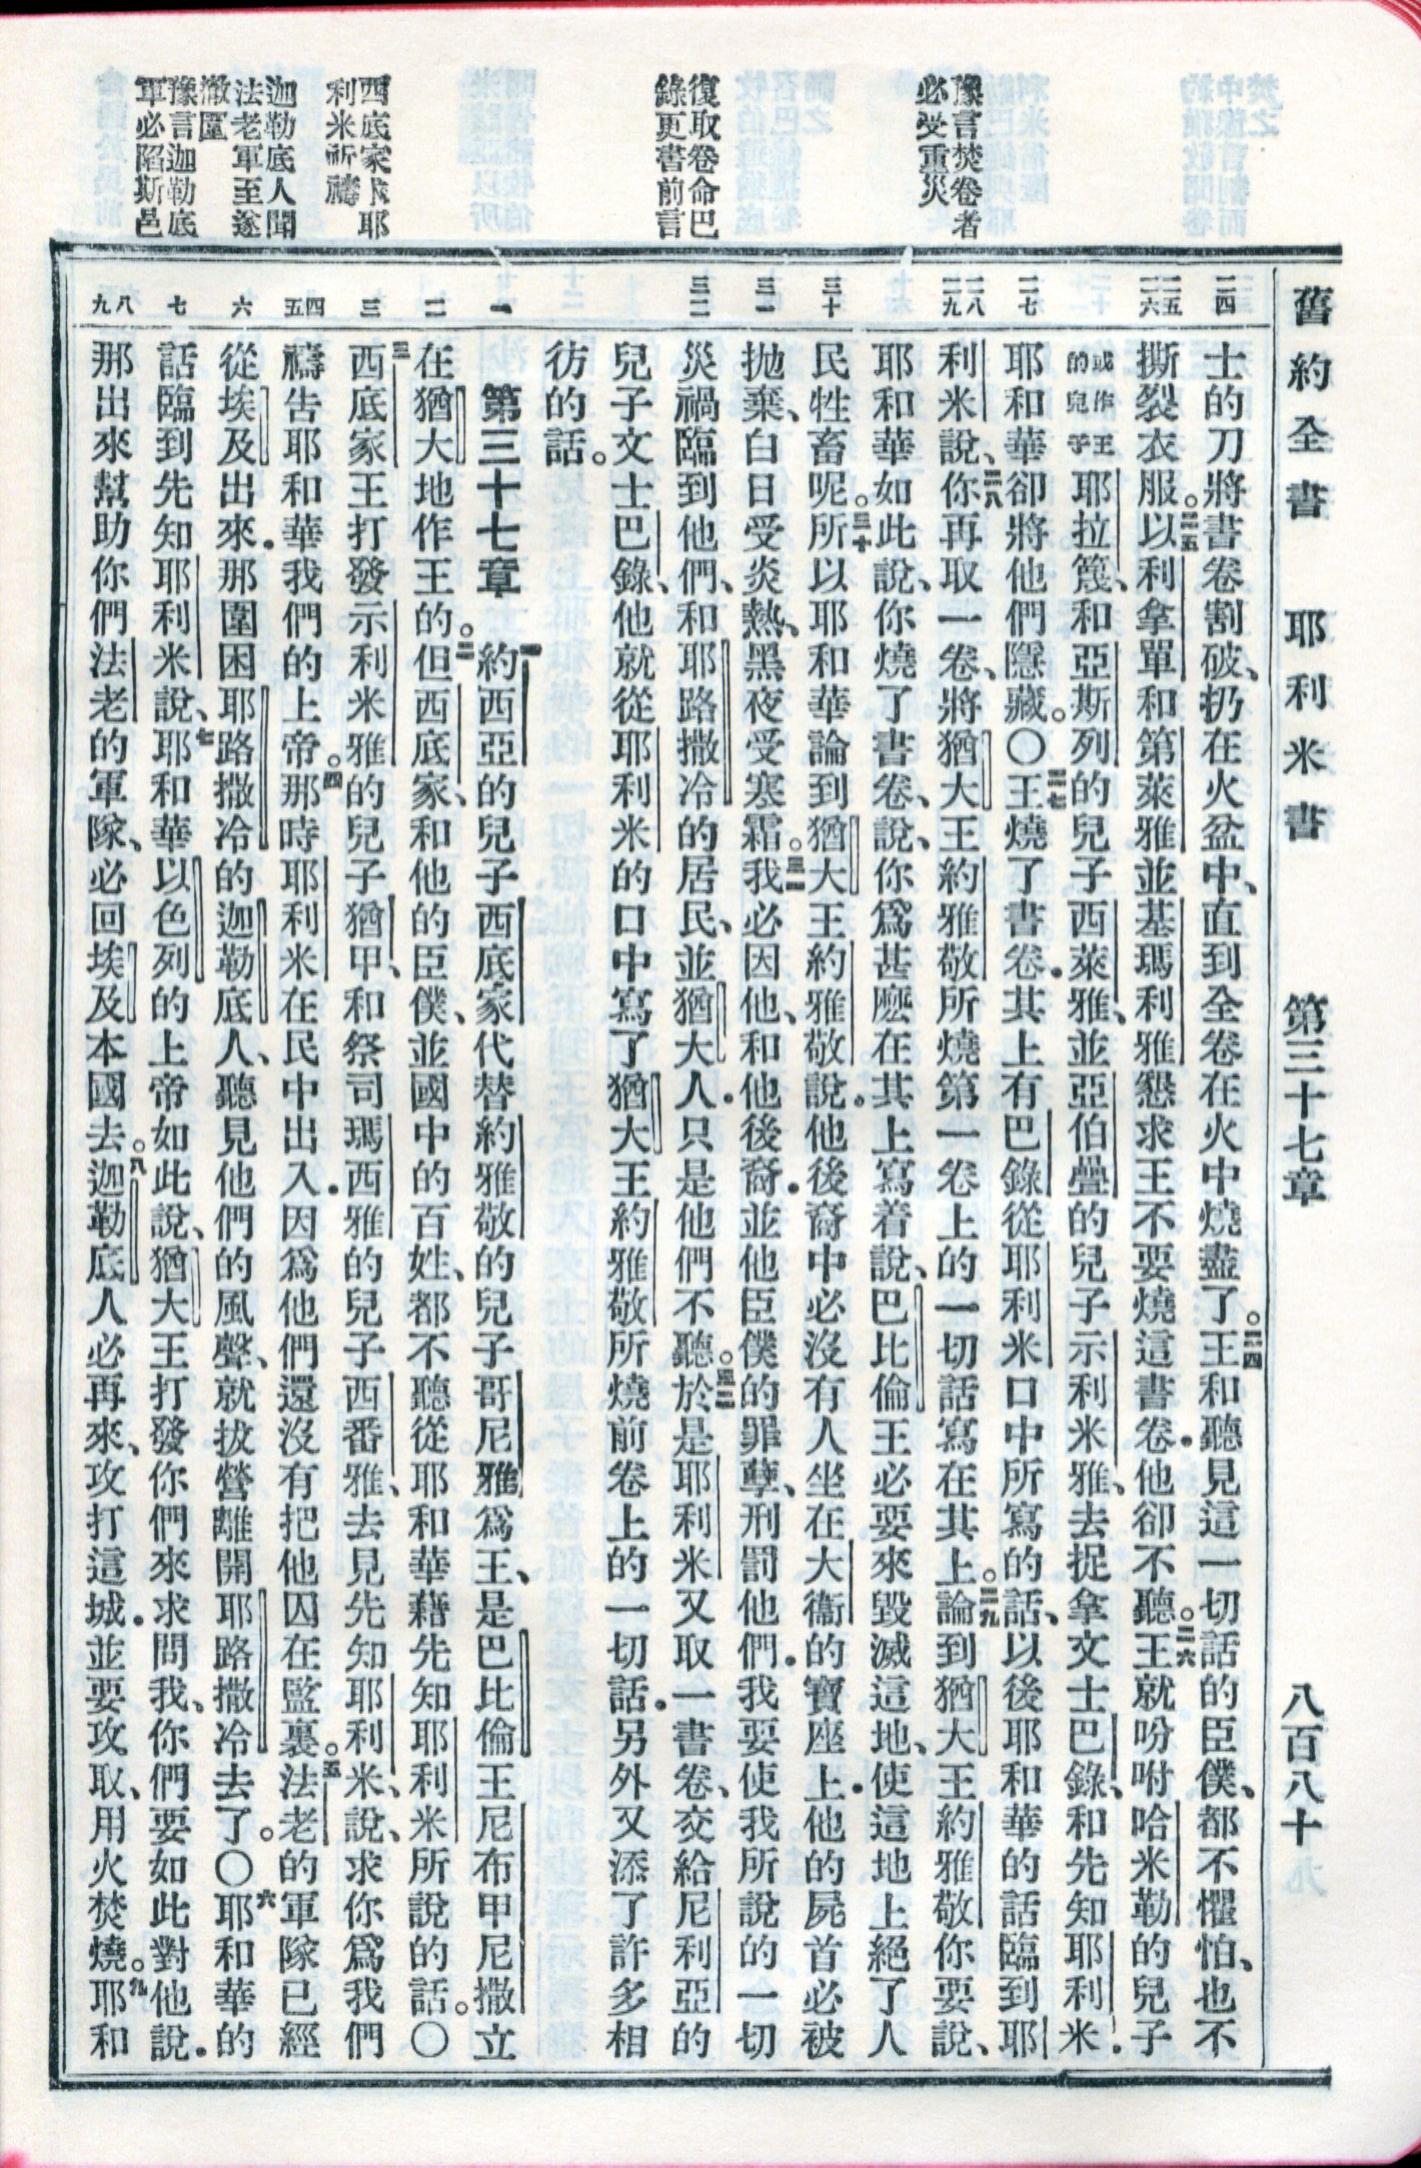 舊約全書 耶利米書 第三十七章 八百八十
豫言焚卷者
必受重災
復取卷命巴
錄更書前言
西底家求耶
利米祈禱
迦勒底人聞
法老軍至遂
撤圍
豫言迦勒底
軍必陷斯邑
二四
二五
二六
二七
二八
二九
三十
三一
三二
一
二
三
四
五
六
七
八
九
士的刀將書卷割破、扔在火盆中、直到全卷在火中燒盡了。二四王和聽見這一切話的臣僕、都不懼怕、也不
撕裂衣服。二五以利拿單和第萊雅並基瑪利雅懇求王不要燒這書卷．他卻不聽。二六王就吩咐哈米勒的兒子
或作王的兒子耶拉篾、和亞斯列的兒子西萊雅、並亞伯疊的兒子示利米雅、去捉拿文士巴錄、和先知耶利米．
耶和華卻將他們隱藏。〇二七王燒了書卷．其上有巴錄從耶利米口中所寫的話、以後耶和華的話臨到耶
利米說、二八你再取一卷、將猶大王約雅敬所燒第一卷上的一切話寫在其上。二九論到猶大王約雅敬你要說、
耶和華如此說、你燒了書卷、說、你爲甚麼在其上寫着說、巴比倫王必要來毀滅這地、使這地上絕了人
民牲畜呢。三十所以耶和華論到猶大王約雅敬說．他後裔中必沒有人坐在大衞的寶座上．他的屍首必被
拋棄、白日受炎熱、黑夜受寒霜。三一我必因他、和他後裔．並他臣僕的罪孽、刑罰他們．我要使我所說的一切
災禍臨到他們、和耶路撒冷的居民、並猶大人．只是他們不聽。三二於是耶利米又取一書卷、交給尼利亞的
兒子文士巴錄、他就從耶利米的口中寫了猶大王約雅敬所燒前卷上的一切話．另外又添了許多相
彷的話。
第三十七章 一約西亞的兒子西底家代替約雅敬的兒子哥尼雅爲王、是巴比倫王尼布甲尼撒立
在猶大地作王的。二但西底家、和他的臣僕、並國中的百姓、都不聽從耶和華藉先知耶利米所說的話。〇
三西底家王打發示利米雅的兒子猶甲、和祭司瑪西雅的兒子西番雅、去見先知耶利米、說、求你爲我們
禱告耶和華我們的上帝。四那時耶利米在民中出入．因爲他們還沒有把他囚在監裏。五法老的軍隊已經
從埃及出來．那圍困耶路撒冷的迦勒底人、聽見他們的風聲、就拔營離開耶路撒冷去了。〇六耶和華的
話臨到先知耶利米說、七耶和華以色列的上帝如此說、猶大王打發你們來求問我、你們要如此對他說．
那出來幫助你們法老的軍隊、必回埃及本國去。八迦勒底人必再來、攻打這城．並要攻取、用火焚燒。九耶和